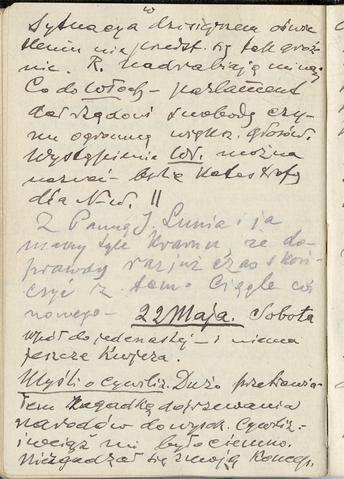 Sytuacya w dzisiejszem oświe
tleniu nie przedst. się tak groź
nie. R. nadrabiają miną,
Co do Włoch – parlament
dał rządowi swobodę czy-
nu ogromną większ. głosów.
Wystąpienie Wł. można
nazwać – było katastrofą
dla N-w. !!
Z Panną J. Lunia i ja
mamy tyle kramu, że do-
prawdy raz już czas skoń-
czyć z tem. Ciągle coś
nowego – 22 Maja. Sobota
wpół do jedenastej – i niema
jeszcze Kuryera.
Myśli o cywiliz. Dużo przetrawia-
łem zagadkę dojrzewania
narodów do wysok. Cywiliz. –
i wciąż mi było ciemno.
Nie zgadzał się z moją koncep.